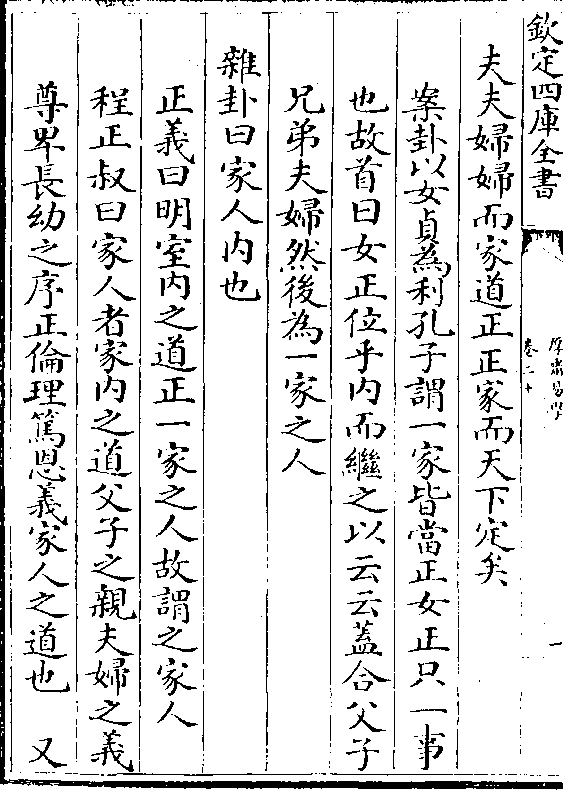 欽定四庫全書
厚齋易學
卷二十
一
夫夫婦婦而家道正正家而天下定矣
案卦以女貞為利孔子謂一家皆當正女正只一事
也故首曰女正位乎内而繼之以云云蓋合父子
兄弟夫婦然後為一家之人
雜卦曰家人内也
正義曰明室内之道正一家之人故謂之家人
程正叔曰家人者家内之道父子之親夫婦之義
尊卑長幼之序正倫理篤恩義家人之道也 又